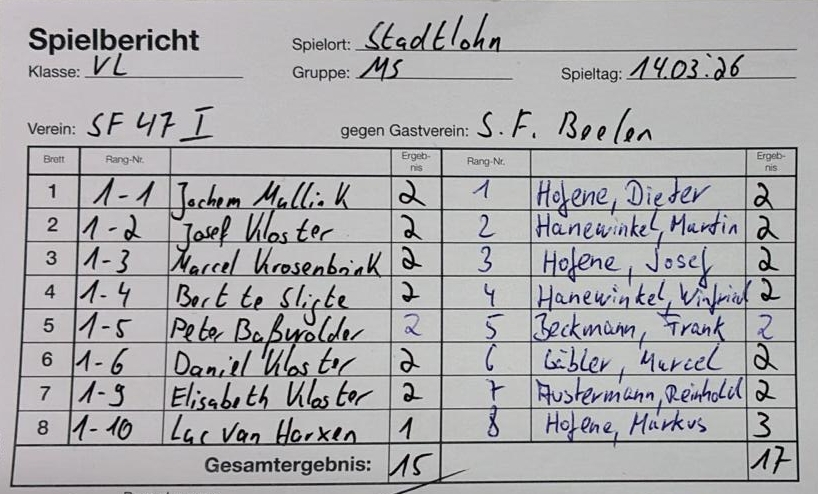 Spielbericht Spielort: Stadtlohn
Klasse: VL Gruppe: MS Spieltag: 14.03.26
Verein: SF 47 I gegen Gastverein: S. F. Beelen
Brett Rang-Nr. Ergeb-nis Rang-Nr. Ergeb-nis
1 1-1 Jochem Mullink 2 1 Hofene, Dieter 2
2 1-2 Josef Kloster 2 2 Hanewinkel, Martin 2
3 1-3 Marcel Krosenbrink 2 3 Hofene, Josef 2
4 1-4 Bert te Sligte 2 4 Hanewinkel, Winfried 2
5 1-5 Peter 2 5 Beckmann, Frank 2
6 1-6 Daniel Kloster 2 6 Marcel 2
7 1-9 Elisabeth Kloster 2 7 Austermann, Reinhold 2
8 1-10 Luc van Harxen 1 8 Hofene, Markus 3
Gesamtergebnis: 15 17